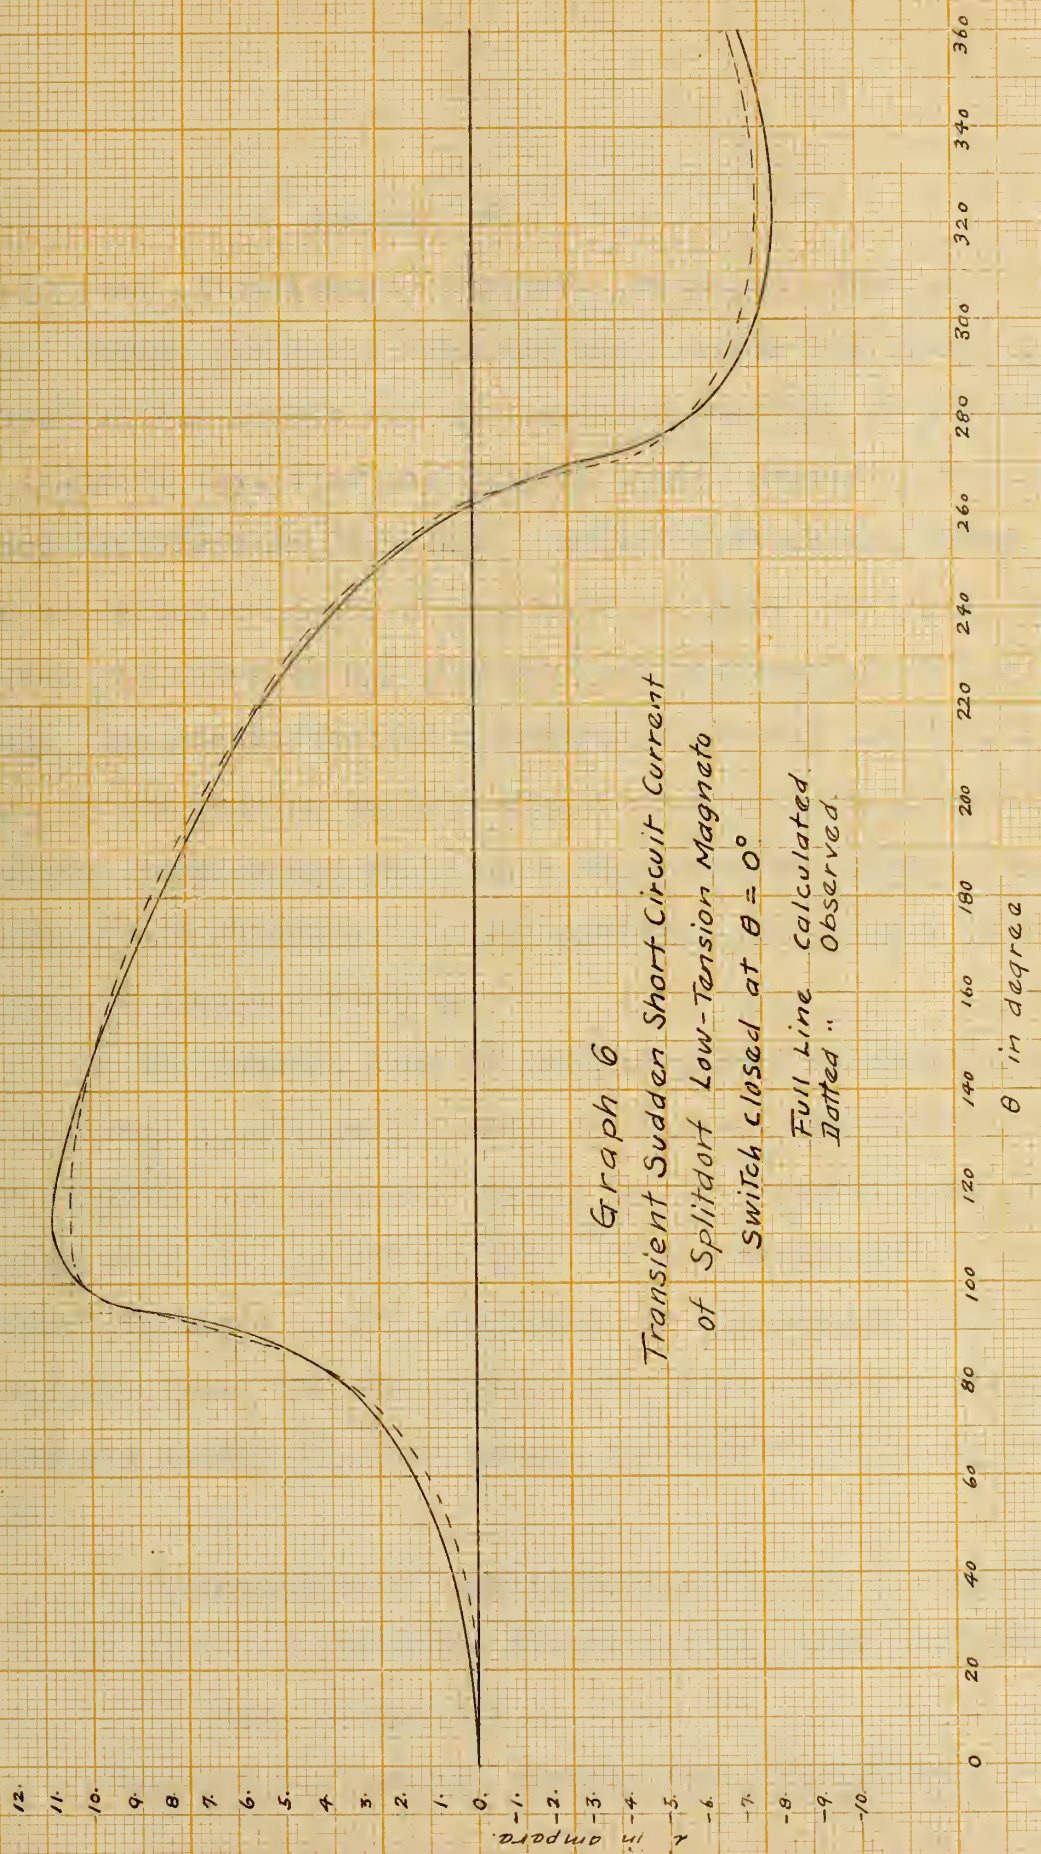 Graph 6
Transient Sudden Short Circuit Current
of Splitdorf Low-Tension Magneto
Switch closed at θ = 0°
Full Line calculated.
Dotted " Observed.
12.
11.
10.
9.
8.
7.
6.
5.
4.
3.
2.
1.
0.
-1.
-2.
-3.
-4.
-5.
-6.
-7.
-8.
-9.
-10.
i in ampere.
0
20
40
60
80
100
120
140
160
180
200
220
240
260
280
300
320
340
360
θ in degree